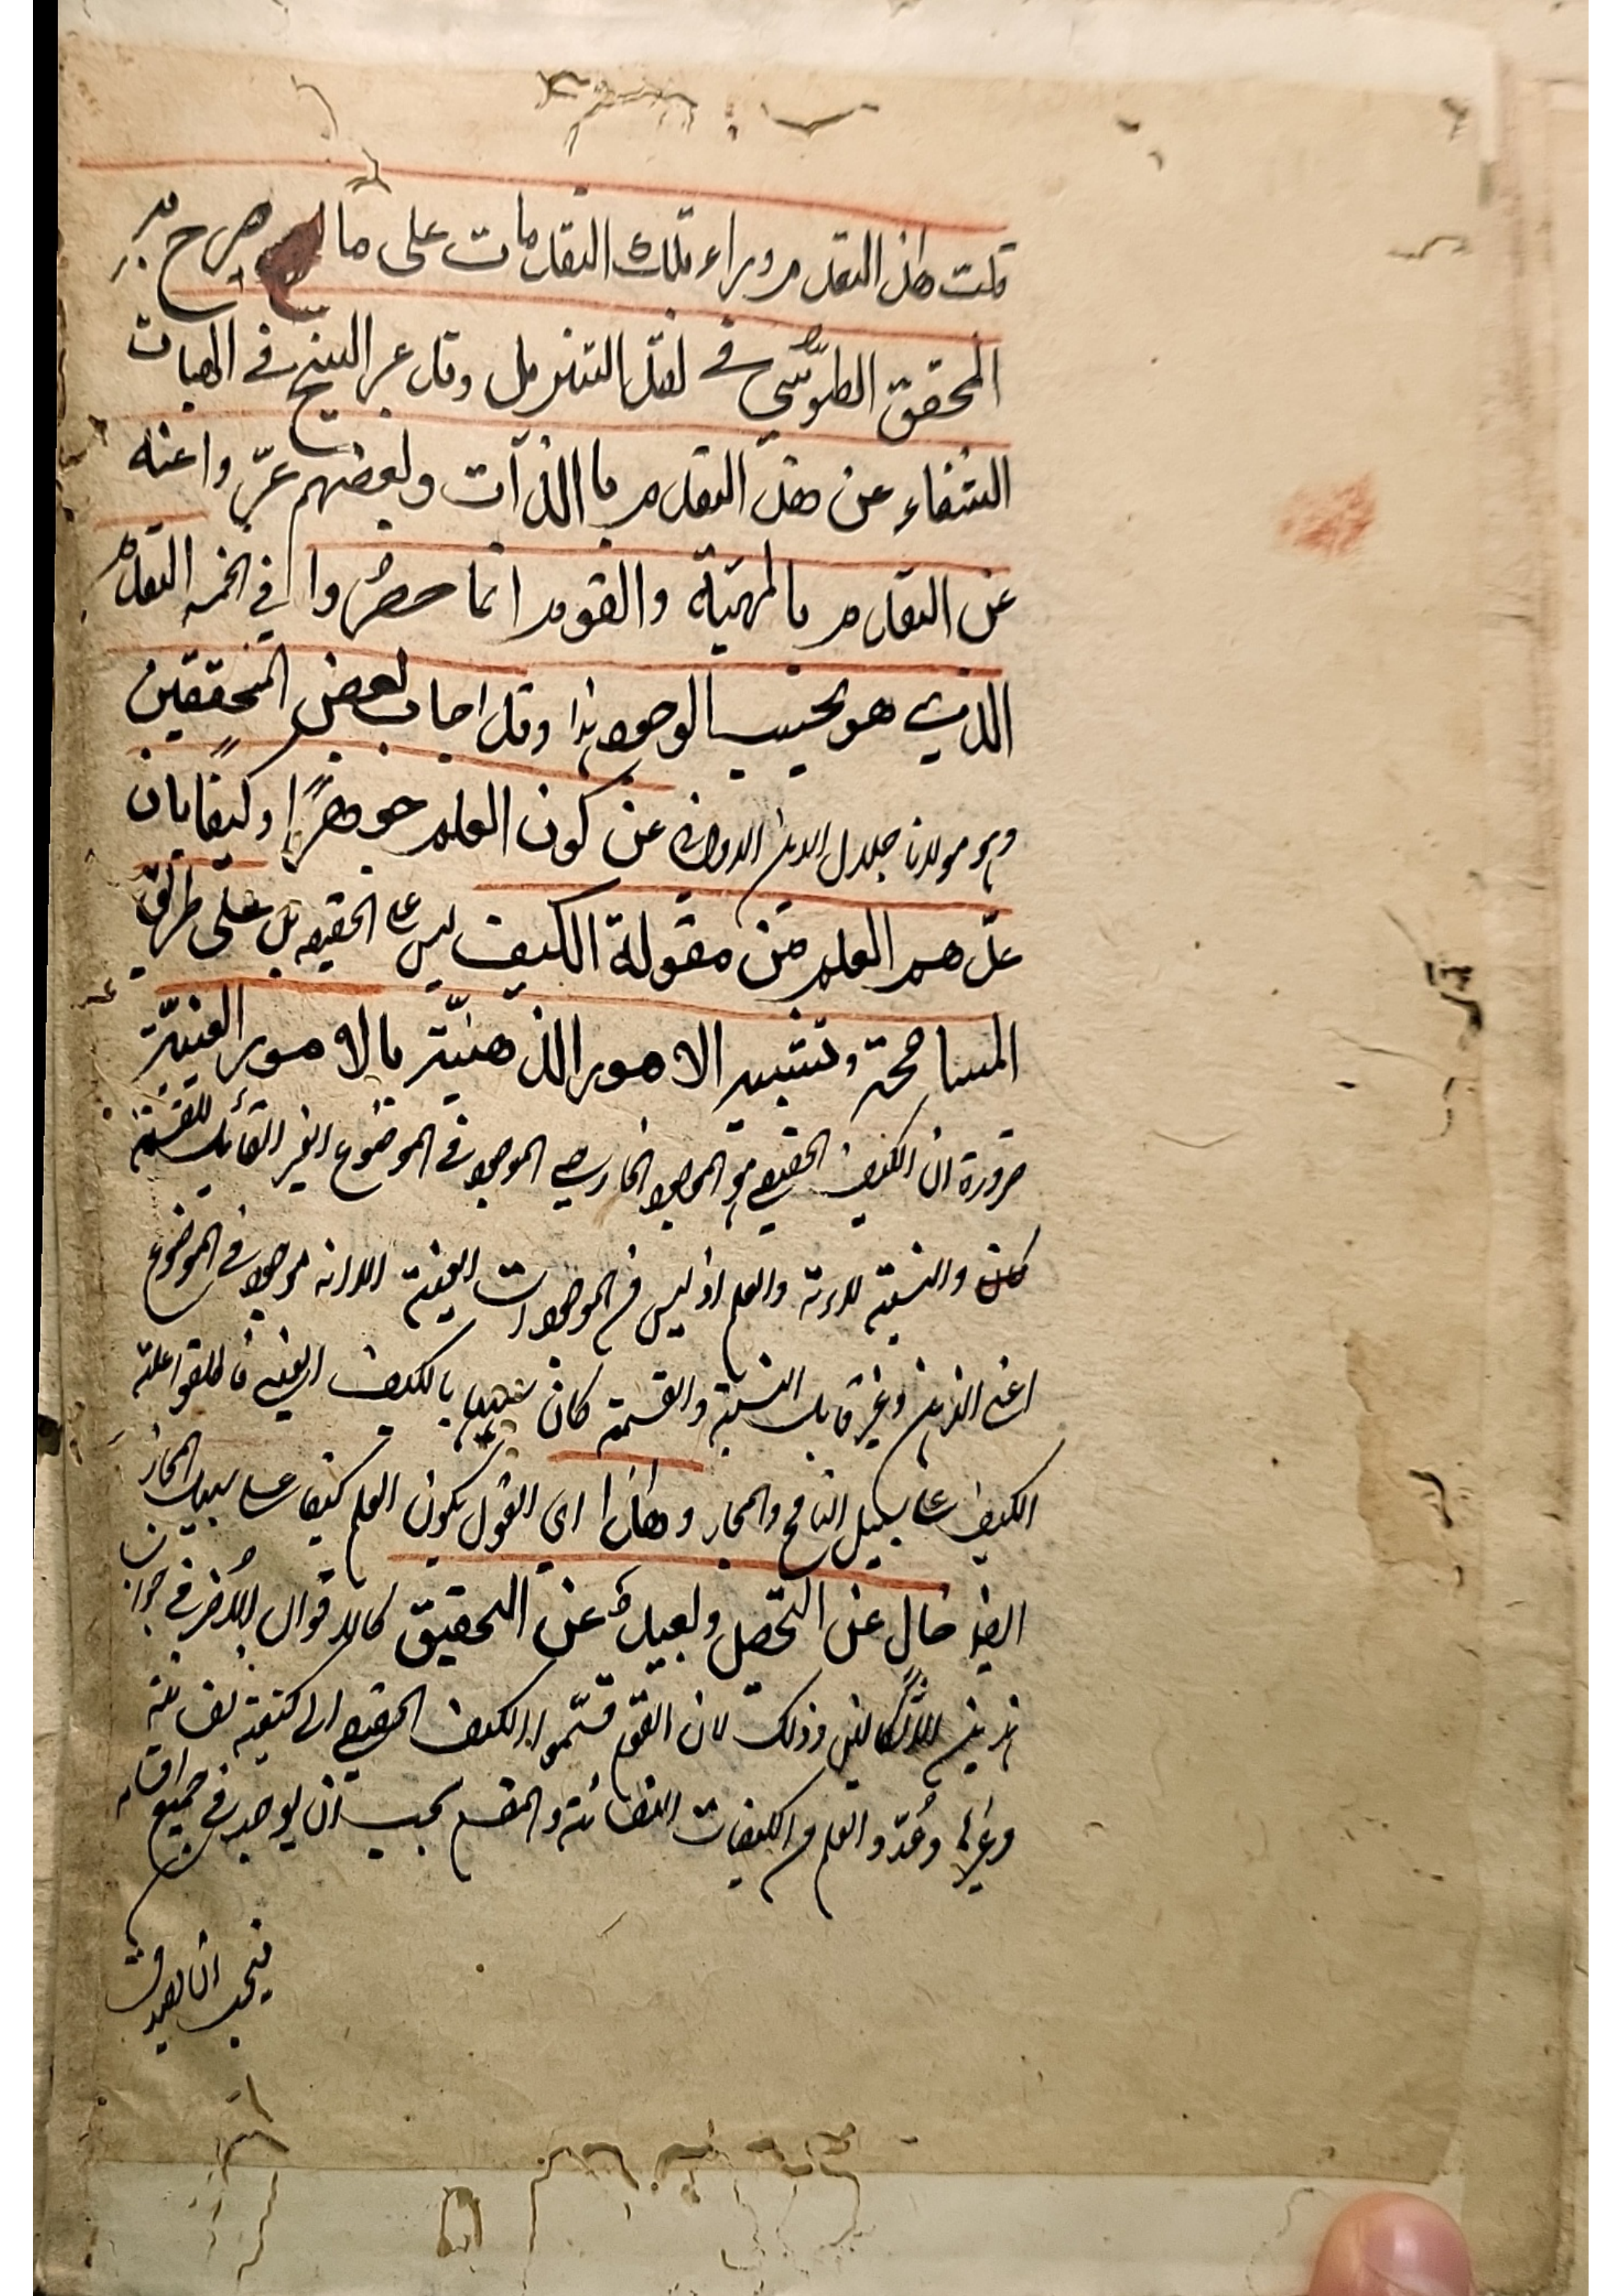 قلت هذا التقدم وراء تلك التقدمات على ما صرح به
المحقق الطوسي في نقد التنزيل وقد عبر الشيخ في الهيات
الشفاء عن هذا التقدم بالذات وبعضهم عبّروا عنه
عن التقدم بالمهيّة والقوم انما حصروا في الخمسه التقدم
الذي هو بحسب الوجود هذا وقد اجاب بعض المحققين
وهو مولانا جلال الدين الدواني عن كون العلم جوهرًا وكيفًا بان
عدّهم العلم من مقولة الكيف ليس على الحقيقه بل على طريق
المسامحة وتشبيه الامور الذهنيّة بالامور العينيّة
ضرورة ان الكيف الحقيقي هو الموجود الخارجي الموجود في الموضوع الغير القابل للقسمة
والنسبة لذاته والعلم اذ ليس من الموجودات العينية الا انه موجود في الموضوع
اعني الذهن وغير قابل النسبة والقسمة كان شبيها بالكيف العيني فاطلقوا عليه
الكيف على سبيل التسامح والمجاز وهذا اي القول بكون العلم كيفا على سبيل المجاز
ايضا خال عن التحصيل وبعيد عن التحقيق كالاقوال الاخر في جواب
هذين الاشكالين وذلك لان القوم قسّموا الكيف الحقيقي الى كيفية نفسانية
وغيرها وعدّوا العلم من الكيفيات النفسانية والمقسم يجب ان يوجد في جميع اقسامه
فيجب ان يصدق